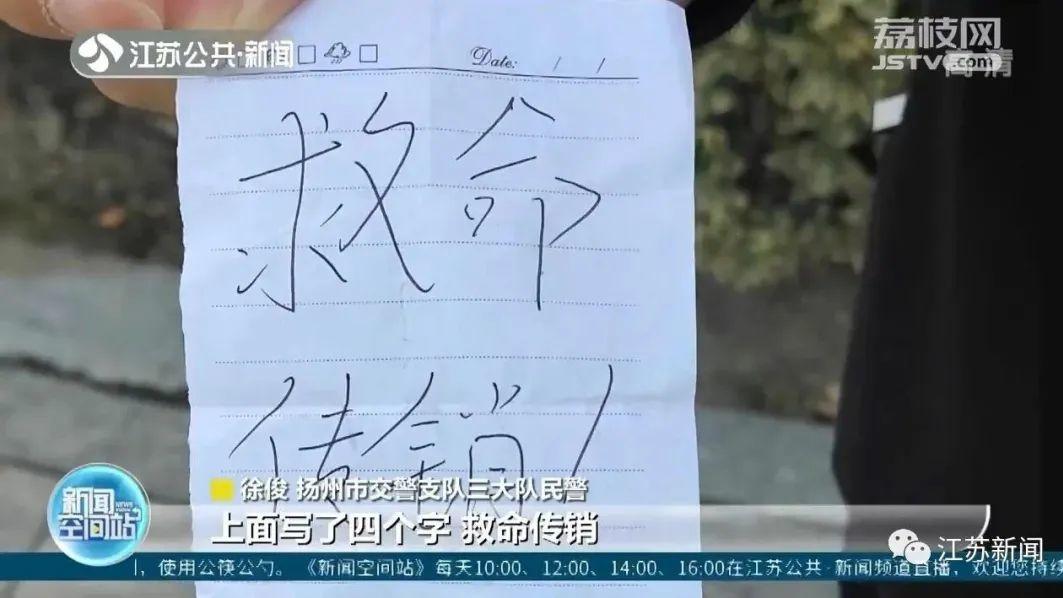 江苏公共·新闻
Date: / /
荔枝网
JSTV.com
高清
救命
传销!
徐俊 扬州市交警支队三大队民警
上面写了四个字 救命传销
新闻
NEWS
空间站
江苏新闻
，使用公筷公勺。《新闻空间站》每天10:00、12:00、14:00、16:00在江苏公共·新闻频道直播，欢迎您持续